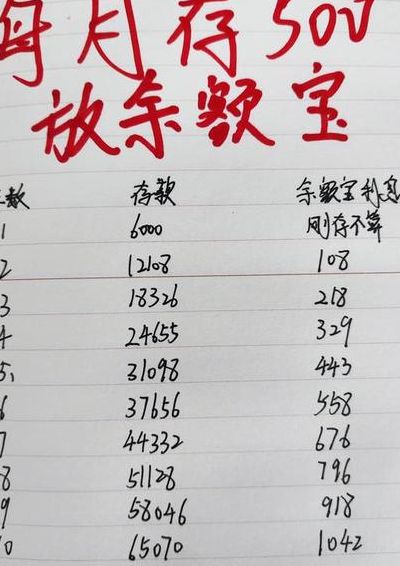 每月存500
放余额宝
年数 存款 余额宝利息
1 6000 刚存不算
2 12108 108
3 18326 218
4 24655 329
5、 31098 443
6 37656 558
7 44332 676
8 51128 796
9 58046 918
10 65070 1042